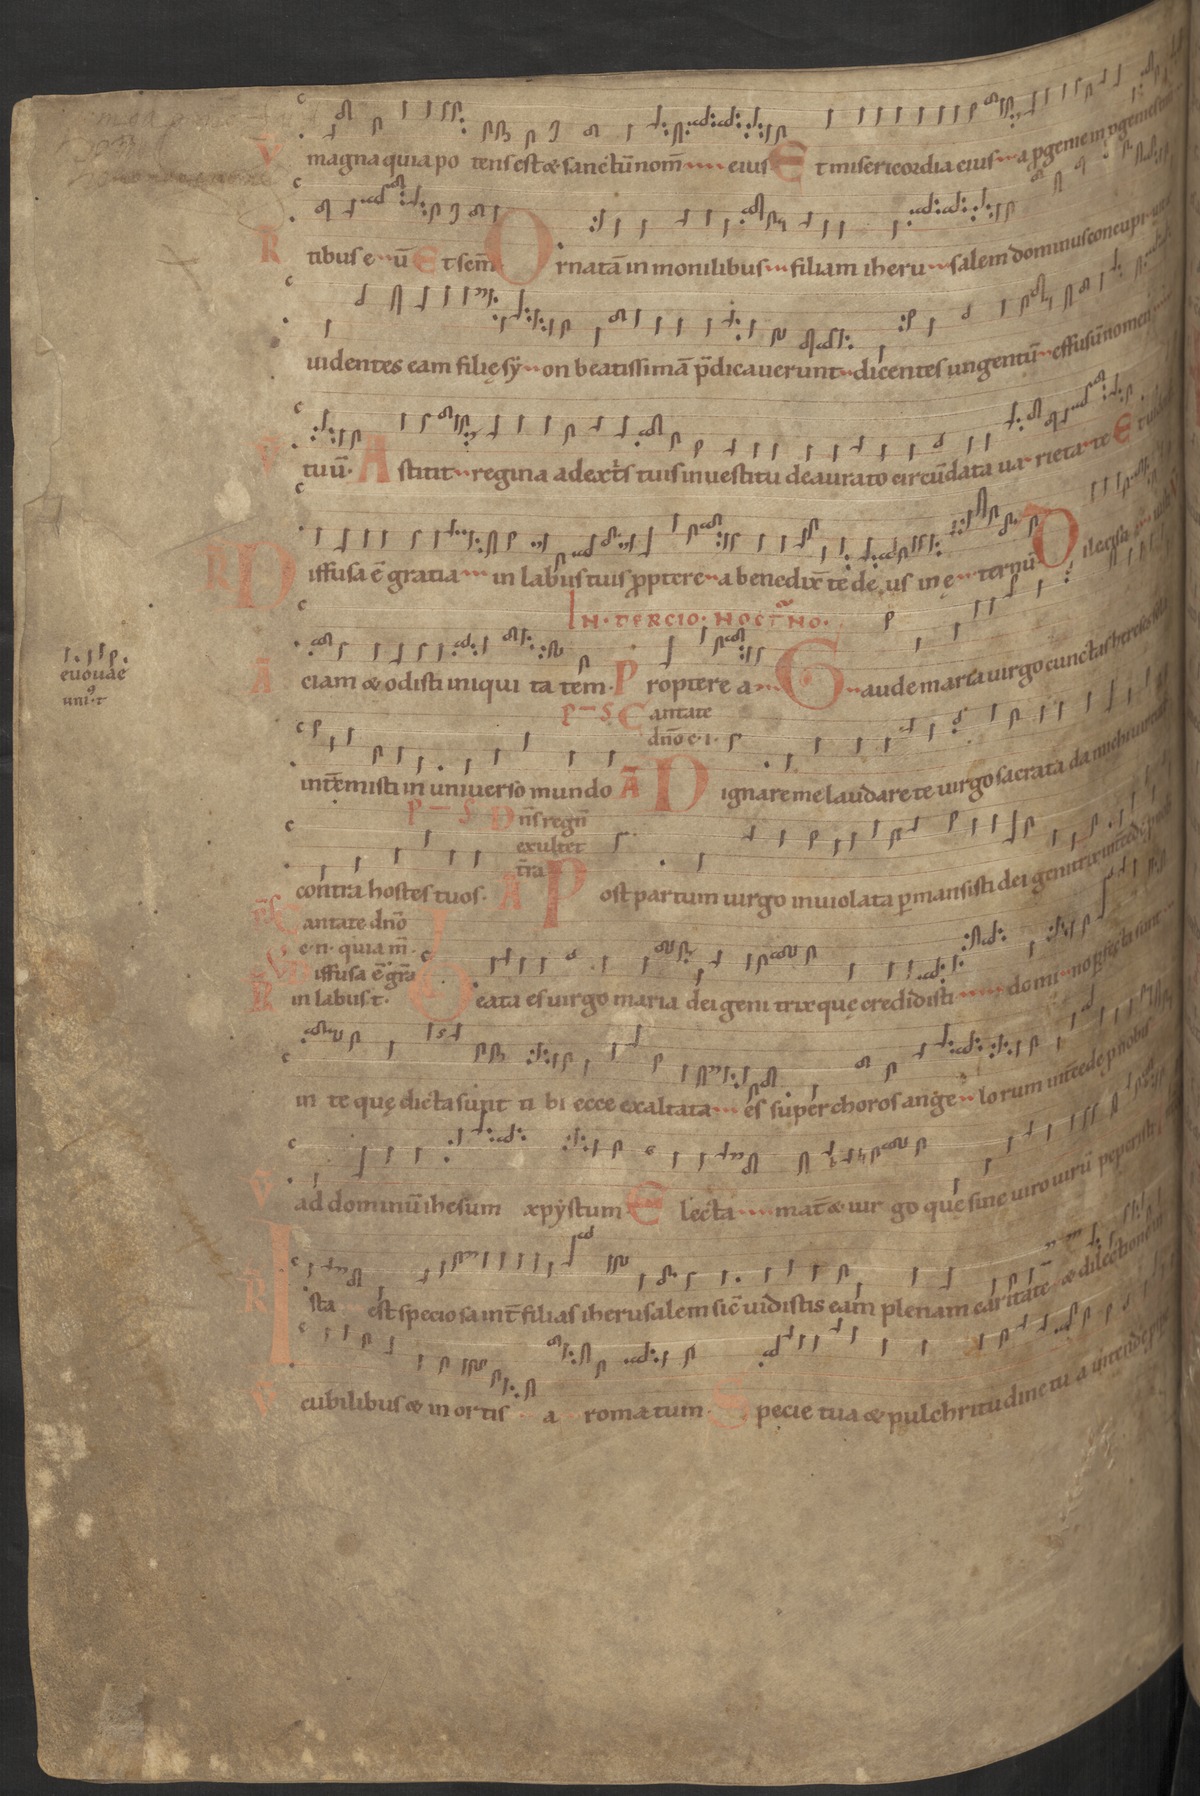 V̄ magna quia po tens est & sanctū nom̄ eius Et misericordia eius a p̱genie in p̱geniem
R̄ tibus e ū Et sem̄ Ornatā in monilibus filiam iheru salem dominus concupi
uidentes eam filię sẏ on beatissimā p̄dicauerunt dicentes ungentū effusū nomen
V̄ tuū. Astitit regina adext̄s tuis in uestitu deaurato circūdata ua rieta te Et
R̄ Diffusa ē gratia in labiis tuis p̱ptere a benedix̄ te de us in e ternū Dilexisti
IN TERCIO NOCT̄NO.
euouae
Ā ciam & odisti iniqui ta tem. P roptere a Gaude maria uirgo cunctas hereses
p̄s Cantate
dn̄o c. i.
int̄emisti in uniuerso mundo Ā Dignare me laudare te uirgo sacrata da michi
p̄s Dn̄s regn̄
exultet
t̄ra
contra hostes tuos. A Post partum uirgo inuiolata p̱mansisti dei genitrix int̄cede
p̄s Cantate dn̄o
c. n. quia m̄.
V̄ Diffusa ē gr̄a
R̄ in labiis t. Beata es uirgo maria dei geni trix quę credidisti domi no p̱fecta sunt
in te quę dicta sunt ti bi ecce exaltata es super choros ange lorum int̄cede p̱ nobis
V̄ ad dominū ihesum xpẏstum Electa mat̄ & uir go quę sine uiro uirū peperisti
R̄ Ista est speciosa int̄ filias iherusalem sic̄ uidistis eam plenam caritate & dilectionem
V̄ cubilibus & in ortis a romatum. Specie tua & pulchritudine tu a